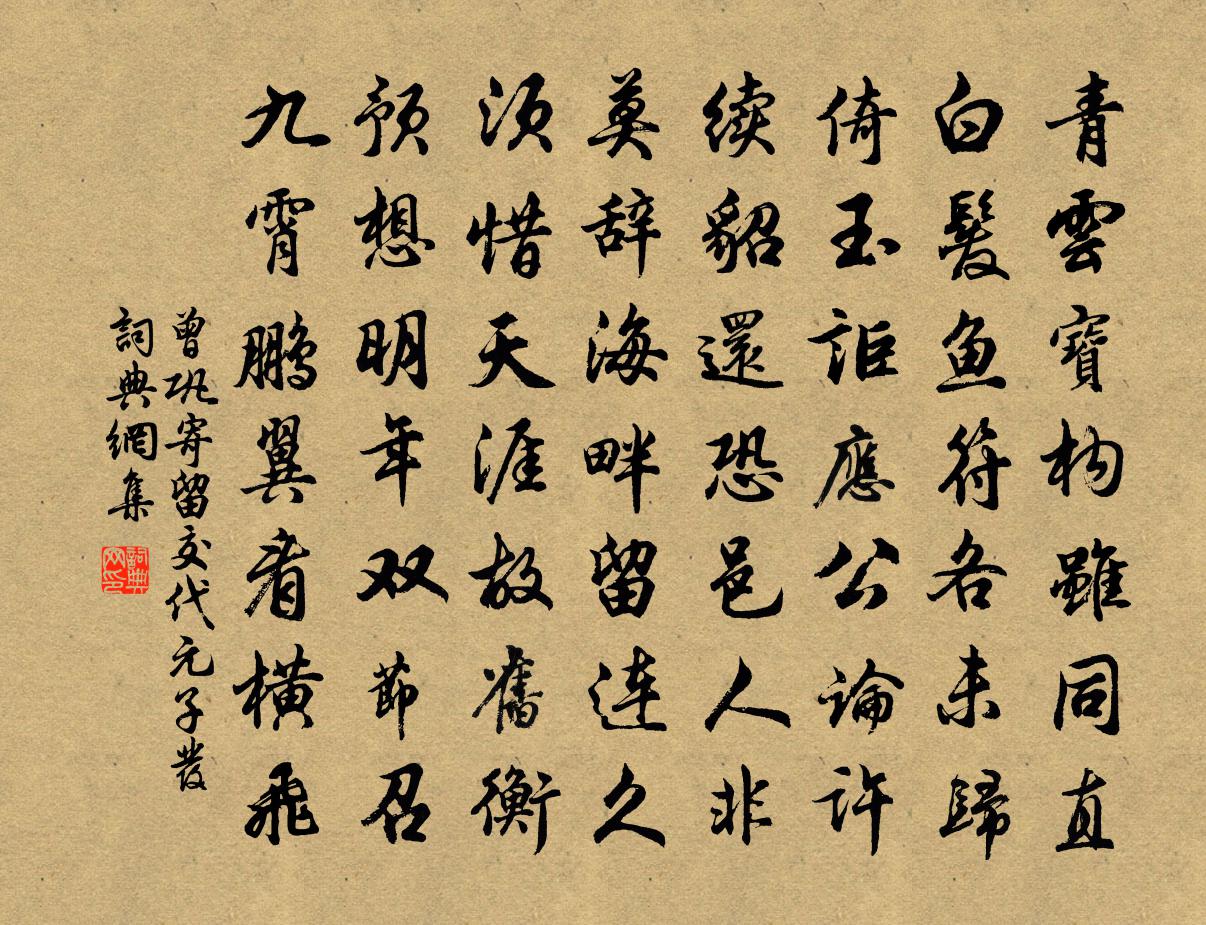 青雲寶构雖同直
白髮鱼符各未歸
倚玉詎應公論許
續貂還恐邑人非
莫辞海畔留連久
須惜天涯故舊衡
預想明年双節召
九霄鵬翼看橫飛
曾巩寄留交代元子發
詞典網集
詞典
网印